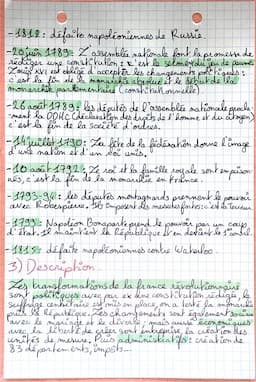 - 1812 : défaite napoléoniennes de Russie
- 20 juin 1789 : L'assemblée nationale font la promesse de
rédiger une constitution : c'est le serment du jeu de paume
Louis XVI est obligé d'accepter les changements politiques :
c'est la fin de la monarchie absolue et le début de la
monarchie parlementaire (constitutionnelle)
- 26 août 1789 : les députés de l'assemblée nationale procla-
ment la DDHC (déclaration des droits de l'homme et du citoyen)
c'est la fin de la société d'ordres.
- 14 juillet 1790 : La fête de la fédération donne l'image
d'une nation et d'un roi unis.
- 10 août 1792 : Le roi et la famille royale sont emprison-
nés, c'est la fin de la monarchie en France.
- 1793-94 : les députés montagnards prennent le pouvoir
avec Robespierre. Ils imposent des mesures fortes : c'est la terreur
- 1799 : Napoléon Bonaparte prend le pouvoir par un coup
d'état. Il maintient la République et en devient le 1er consul.
- 1815 : défaite napoléoniennes contre Waterloo.
3) Description.
Les transformations de la france révolutionnaire
sont politiques avec par ex une constitution rédigée, le
suffrage censitaire est mis en place, on a testé la monarchie
puis la République. Les changements sont également sociaux
avec le mariage et le divorce, mais aussi économiques
avec la liberté de créer son entreprise la création des
unités de mesure. Puis administratifs : création de
83 départements, impôts...